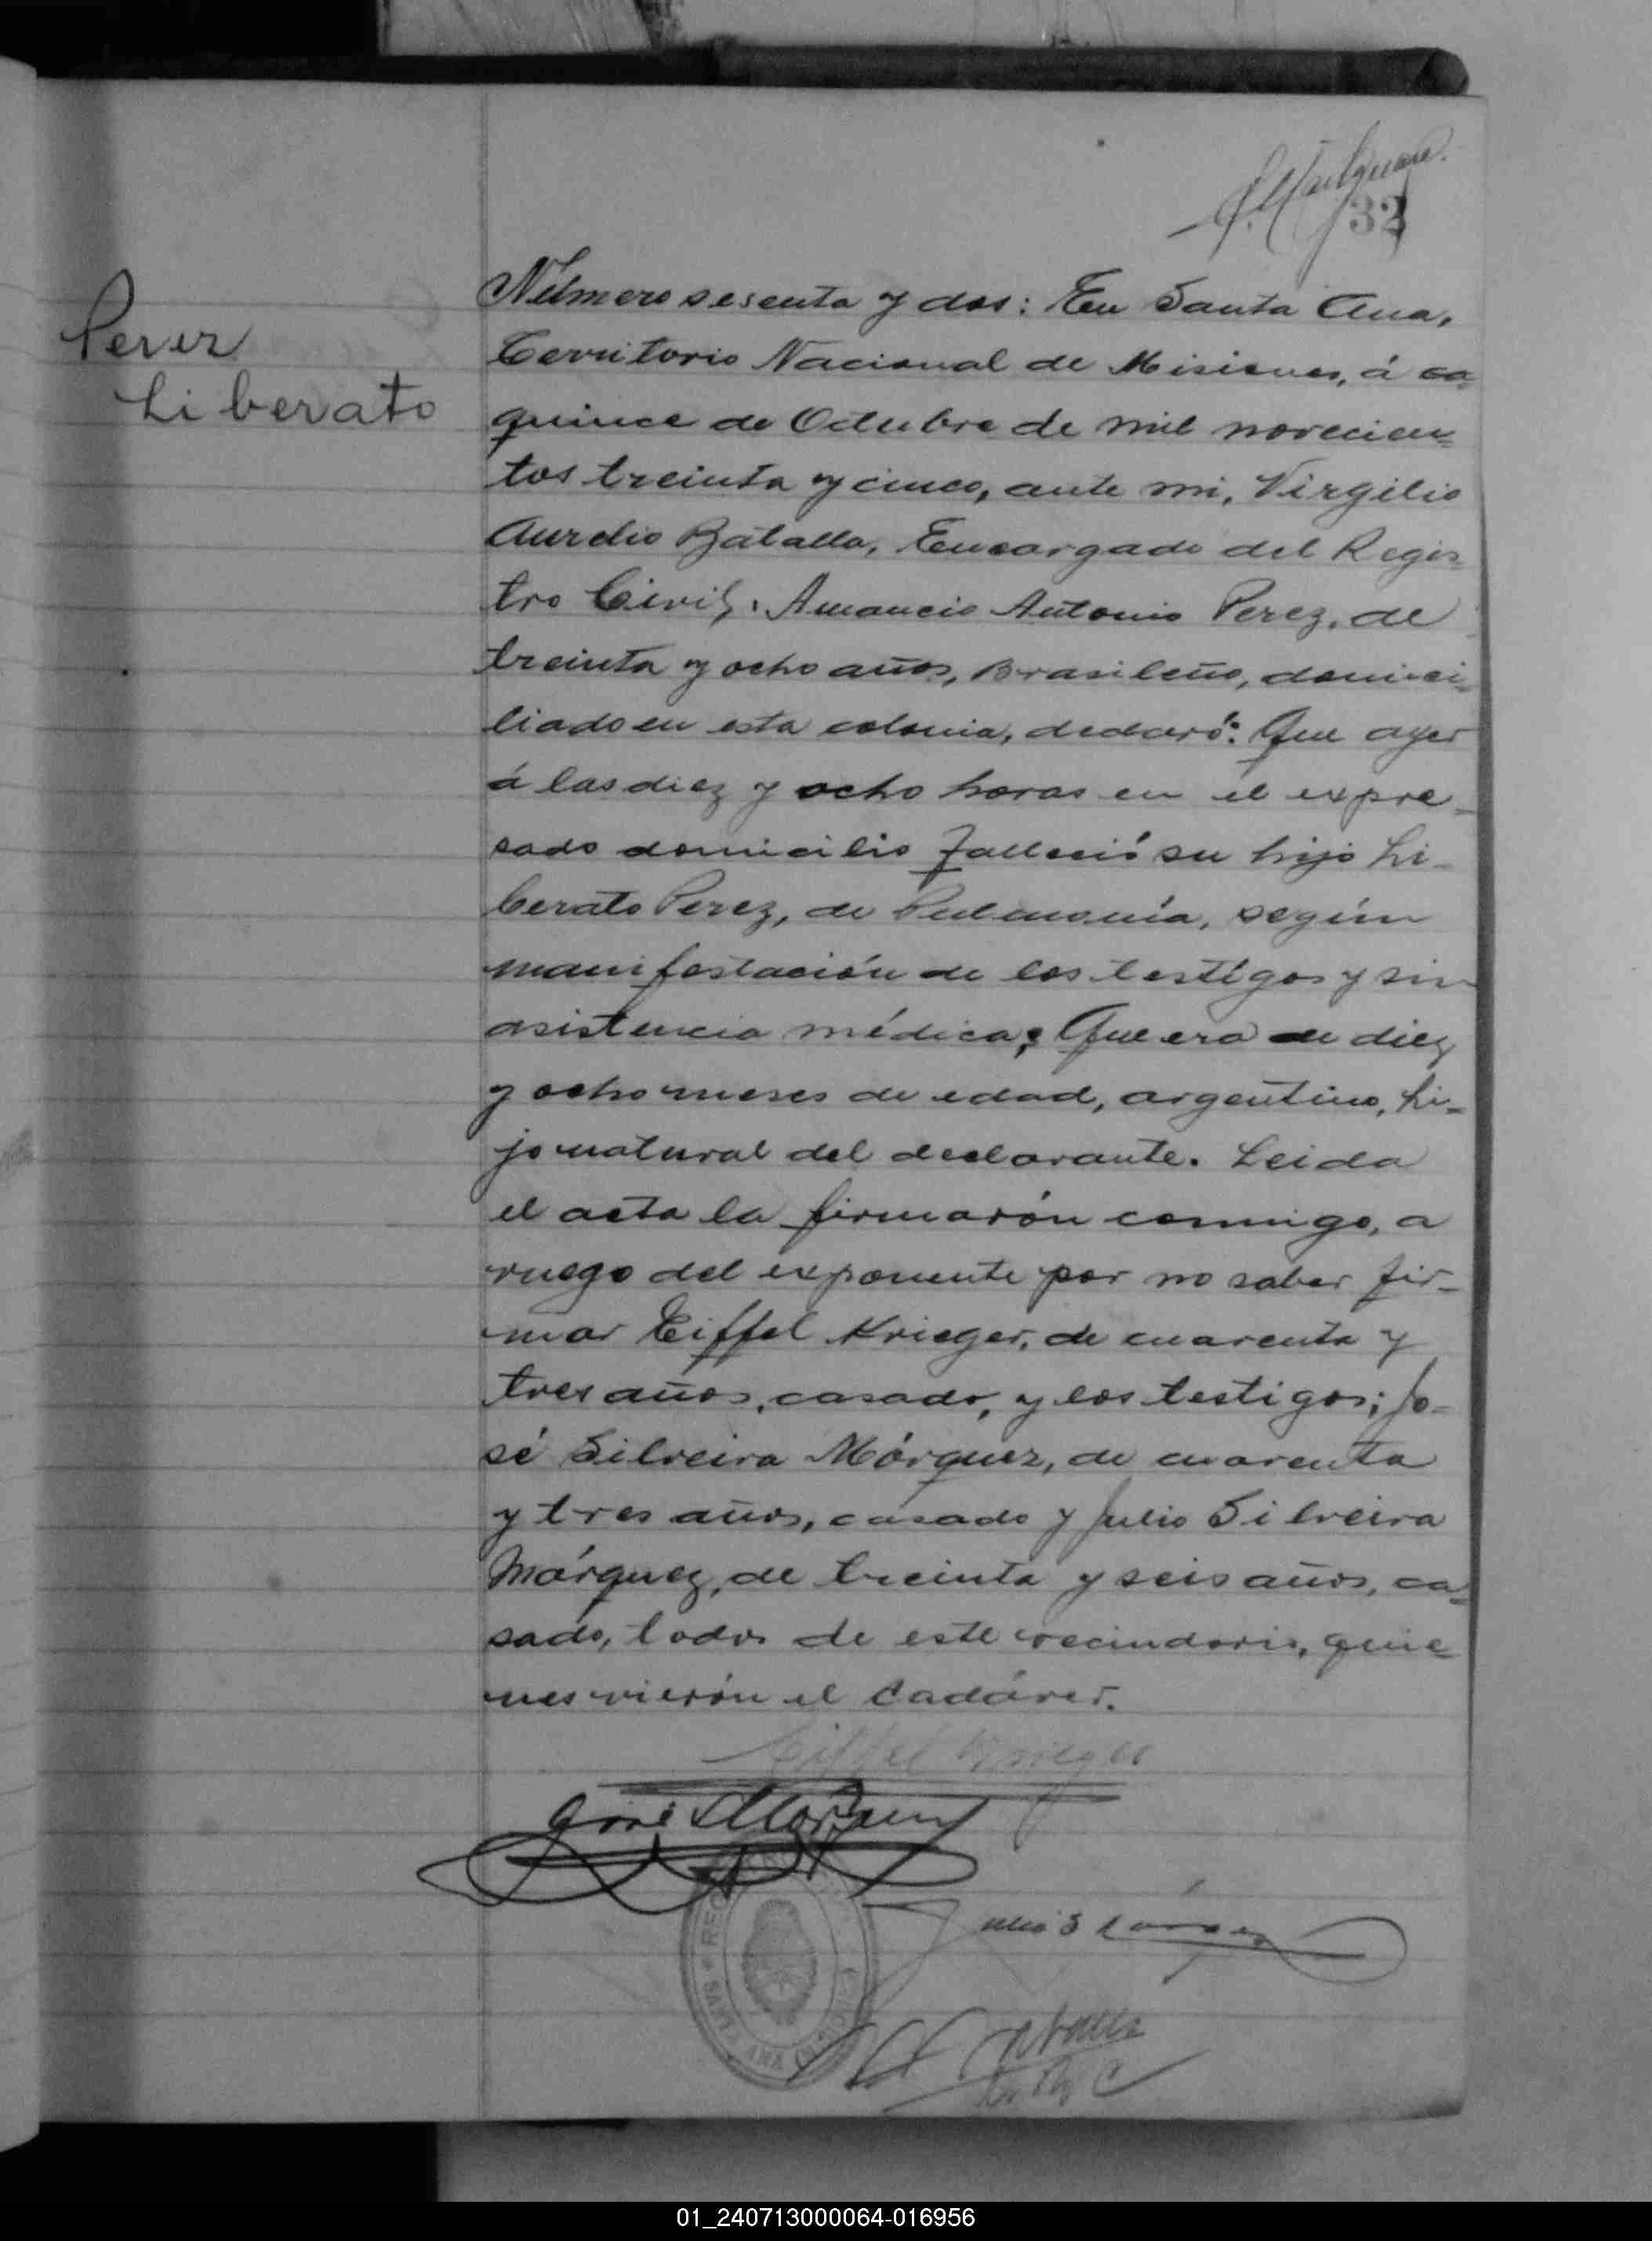 32
Perez
Liberato
Número sesenta y dos: En Santa Ana,
Territorio Nacional de Misiones, á ca-
quince de Octubre de mil novecien-
tos treinta y cinco, ante mi, Virgilio
Aurelio Batalla, Encargado del Regis-
tro Civil, Amancio Antonio Perez, de
treinta y ocho años, Brasileño, domici-
liado en esta colonia, declaró: Que ayer
á las diez y ocho horas en el expre-
sado domicilio falleció su hijo Li-
berato Perez, de Pulmonía, según
manifestación de los testigos y sin
asistencia médica; Que era de diez
y ocho meses de edad, argentino, hi-
jo natural del declarante. Leida
el acta la firmarón conmigo, a
ruego del exponente por no saber fir-
mar Eiffel Krieger, de cuarenta y
tres años, casado, y los testigos; Jo-
sé Silveira Márquez, de cuarenta
y tres años, casado y Julio Silveira
Márquez, de treinta y seis años, ca-
sado, todos de este vecindario, quie-
nes vierón el cadáver.
Eiffel Krieger
José S Márquez
Julio S Márquez
01_240713000064-016956